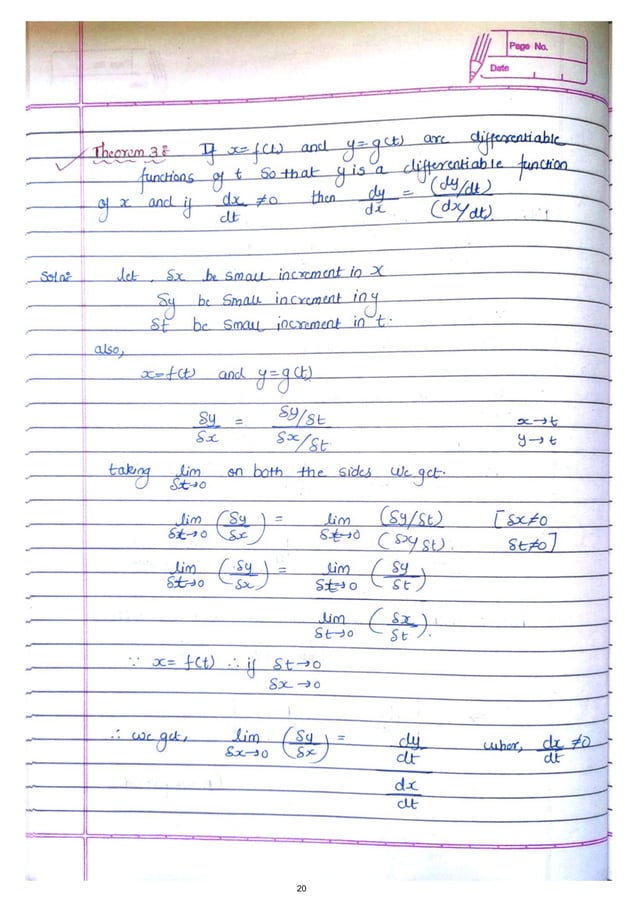 Page No.
Date
Theorem 3: If x=f(t) and y=g(t) are differentiable
functions of t so that y is a differentiable function
of x and if dx/dt ≠0 then dy/dx = (dy/dt)/(dx/dt).
Soln: let, δx be small increment in x
δy be small increment in y
δt be small increment in t.
also,
x=f(t) and y=g(t)
δy/δx = (δy/δt)/(δx/δt) x→t
y→t
taking lim δt→0 on both the sides we get.
lim δt→0 (δy/δx) = lim δt→0 (δy/δt)/(δx/δt). [δx≠0
δt≠0]
lim δt→0 (δy/δx) = lim δt→0 (δy/δt)
lim δt→0 (δx/δt).
∵ x= f(t) ∴ if δt→0
δx→0
∴ we get, lim δx→0 (δy/δx) = (dy/dt)/(dx/dt) wher, dx/dt ≠0
20